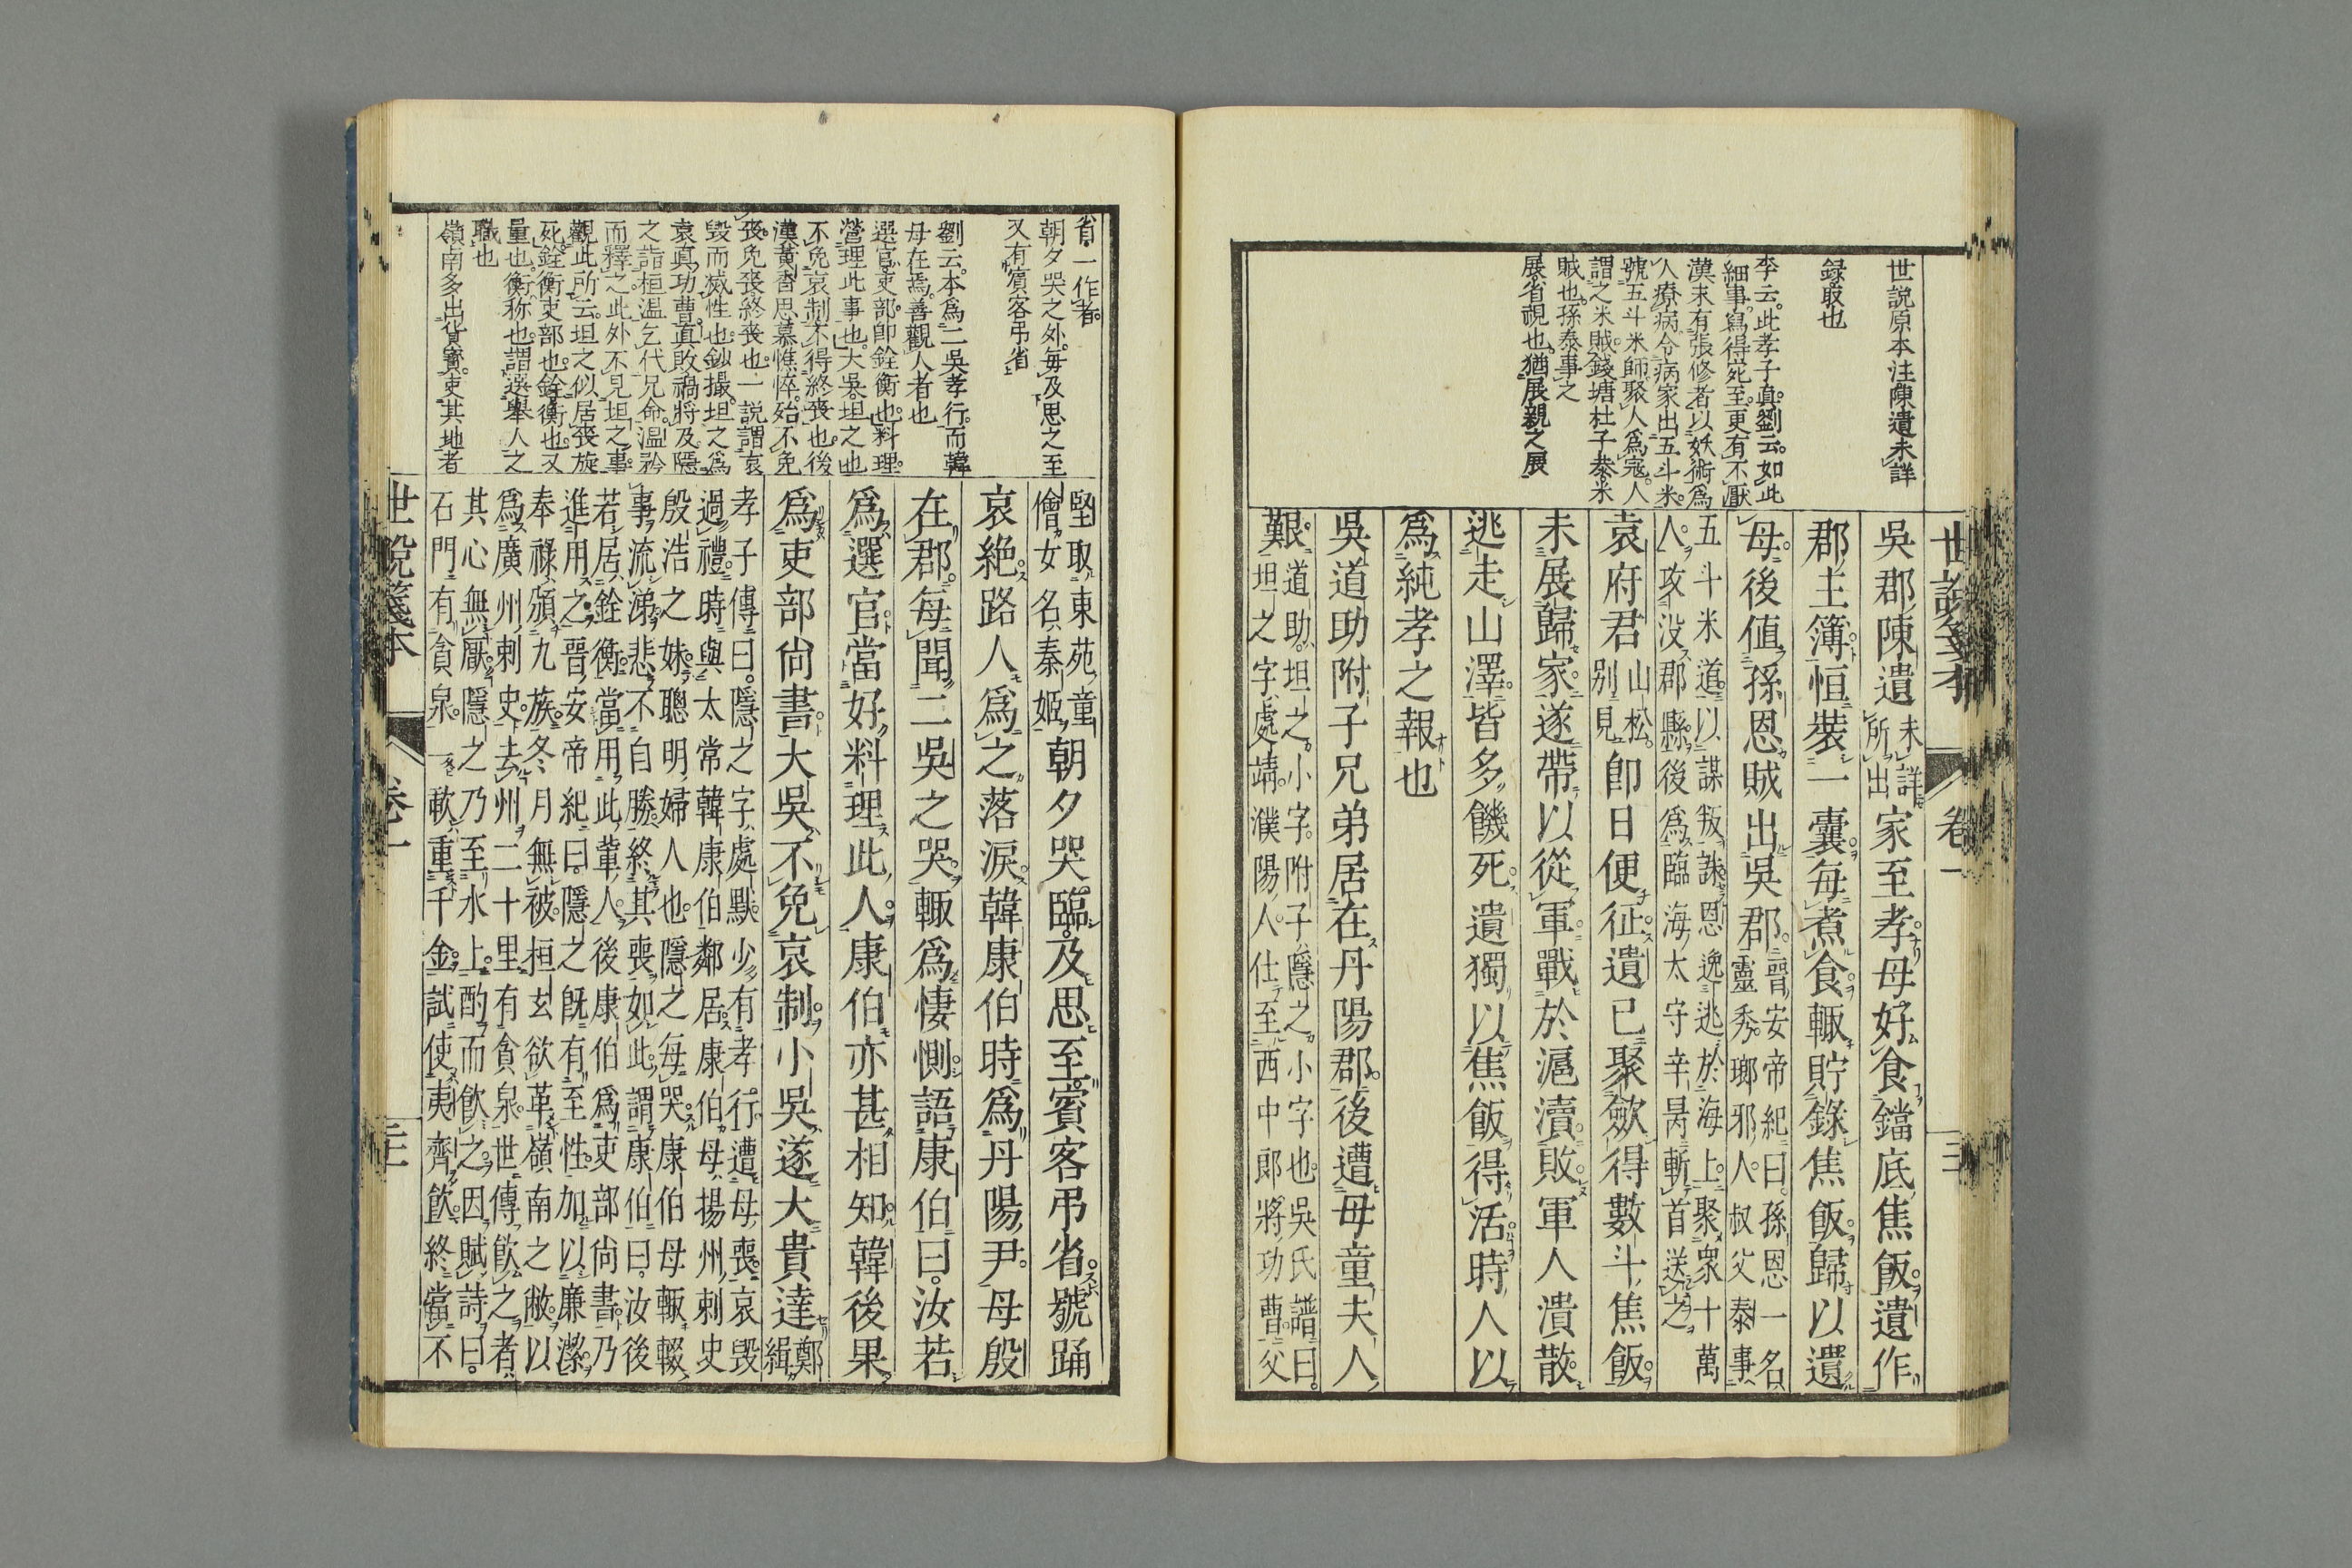 世說箋本 卷一
世說原本注陳遺未詳
錄取也
李云此孝子眞劉云如此
細事寫得死至更有不厭
漢末有張修者以妖術爲
人療病令病家出五斗米
號五斗米師聚人爲寇人
謂之米賊錢塘杜子恭米
賊也孫泰事之
展省視也猶展親之展
吳郡陳遺未詳所出家至孝母好食鐺底焦飯遺作
郡主簿恒裝一囊每煮食輒貯錄焦飯歸以遺
母後値孫恩賊出吳郡晉安帝紀曰孫恩一名靈秀瑯邪人叔父泰事
五斗米道以謀叛誅恩逸逃於海上聚衆十萬
人攻沒郡縣後爲臨海太守辛昺斬首送之
袁府君山松別見卽日便征遺已聚斂得數斗焦飯
未展歸家遂帶以從軍戰於滬瀆敗軍人潰散
逃走山澤皆多饑死遺獨以焦飯得活時人以
爲純孝之報也
吳道助附子兄弟居在丹陽郡後遭母童夫人
艱道助坦之小字附子隱之小字也吳氏譜曰
坦之字處靖濮陽人仕至西中郎將功曹父
省一作者
朝夕哭之外每及思之至
又有賓客弔省
劉云本爲二吳孝行而韓
母在焉善觀人者也
選官吏部卽銓衡也料理
營理此事也大吳坦之也
不免哀制不得終喪也後
漢黃香思慕憔悴殆不免
喪免喪終喪也一說謂哀
毀而滅性也鈔撮坦之爲
袁眞功曹眞敗禍將及隱
之詣桓溫乞代兄命溫矜
而釋之此外不見坦之事
觀此所云坦之似居喪旋
死銓衡吏部也銓衡也又
量也衡稱也謂選舉人之
職也
嶺南多出貨寶吏其地者
堅取東苑童
儈女名秦姬朝夕哭臨及思至賓客弔省號踊
哀絶路人爲之落淚韓康伯時爲丹陽尹母殷
在郡每聞二吳之哭輒爲悽惻語康伯曰汝若
爲選官當好料理此人康伯亦甚相知韓後果
爲吏部尙書大吳不免哀制小吳遂大貴達鄭緝
孝子傳曰隱之字處默少有孝行遭母喪哀毀
過禮時與太常韓康伯鄰居康伯母揚州刺史
殷浩之妹聰明婦人也隱之每哭康伯母輒輟
事流涕悲不自勝終其喪如此謂康伯曰汝後
若居銓衡當用此輩人後康伯爲吏部尙書乃
進用之晉安帝紀曰隱之旣有至性加以廉潔
奉祿頒九族冬月無被桓玄欲革嶺南之敝以
爲廣州刺史去州二十里有貪泉世傳飮之者
其心無厭隱之乃至水上酌而飮之因賦詩曰
石門有貪泉一歃重千金試使夷齊飮終當不
世說箋本 卷一 三